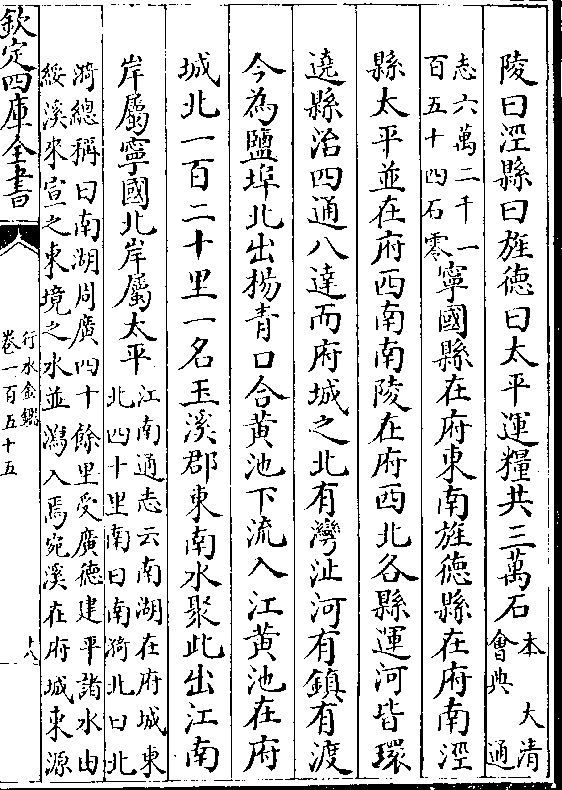 陵曰涇縣曰旌德曰太平運糧共三萬石
本 大清
會典 通
志六萬二千一
百五十四石零
寧國縣在府東南旌德縣在府南涇
縣太平並在府西南南陵在府西北各縣運河皆環
遶縣治四通八達而府城之北有灣沚河有鎮有渡
今為鹽埠北出揚青口合黃池下流入江黃池在府
城北一百二十里一名玉溪郡東南水聚此出江南
岸屬寧國北岸屬太平
江南通志云南湖在府城東
北四十里南曰南漪北曰北
漪總稱曰南湖周廣四十餘里受廣德建平諸水由
綏溪來宣之東境之水並瀉入焉宛溪在府城東源
欽定四庫全書
行水金鑑
卷一百五十五
十八